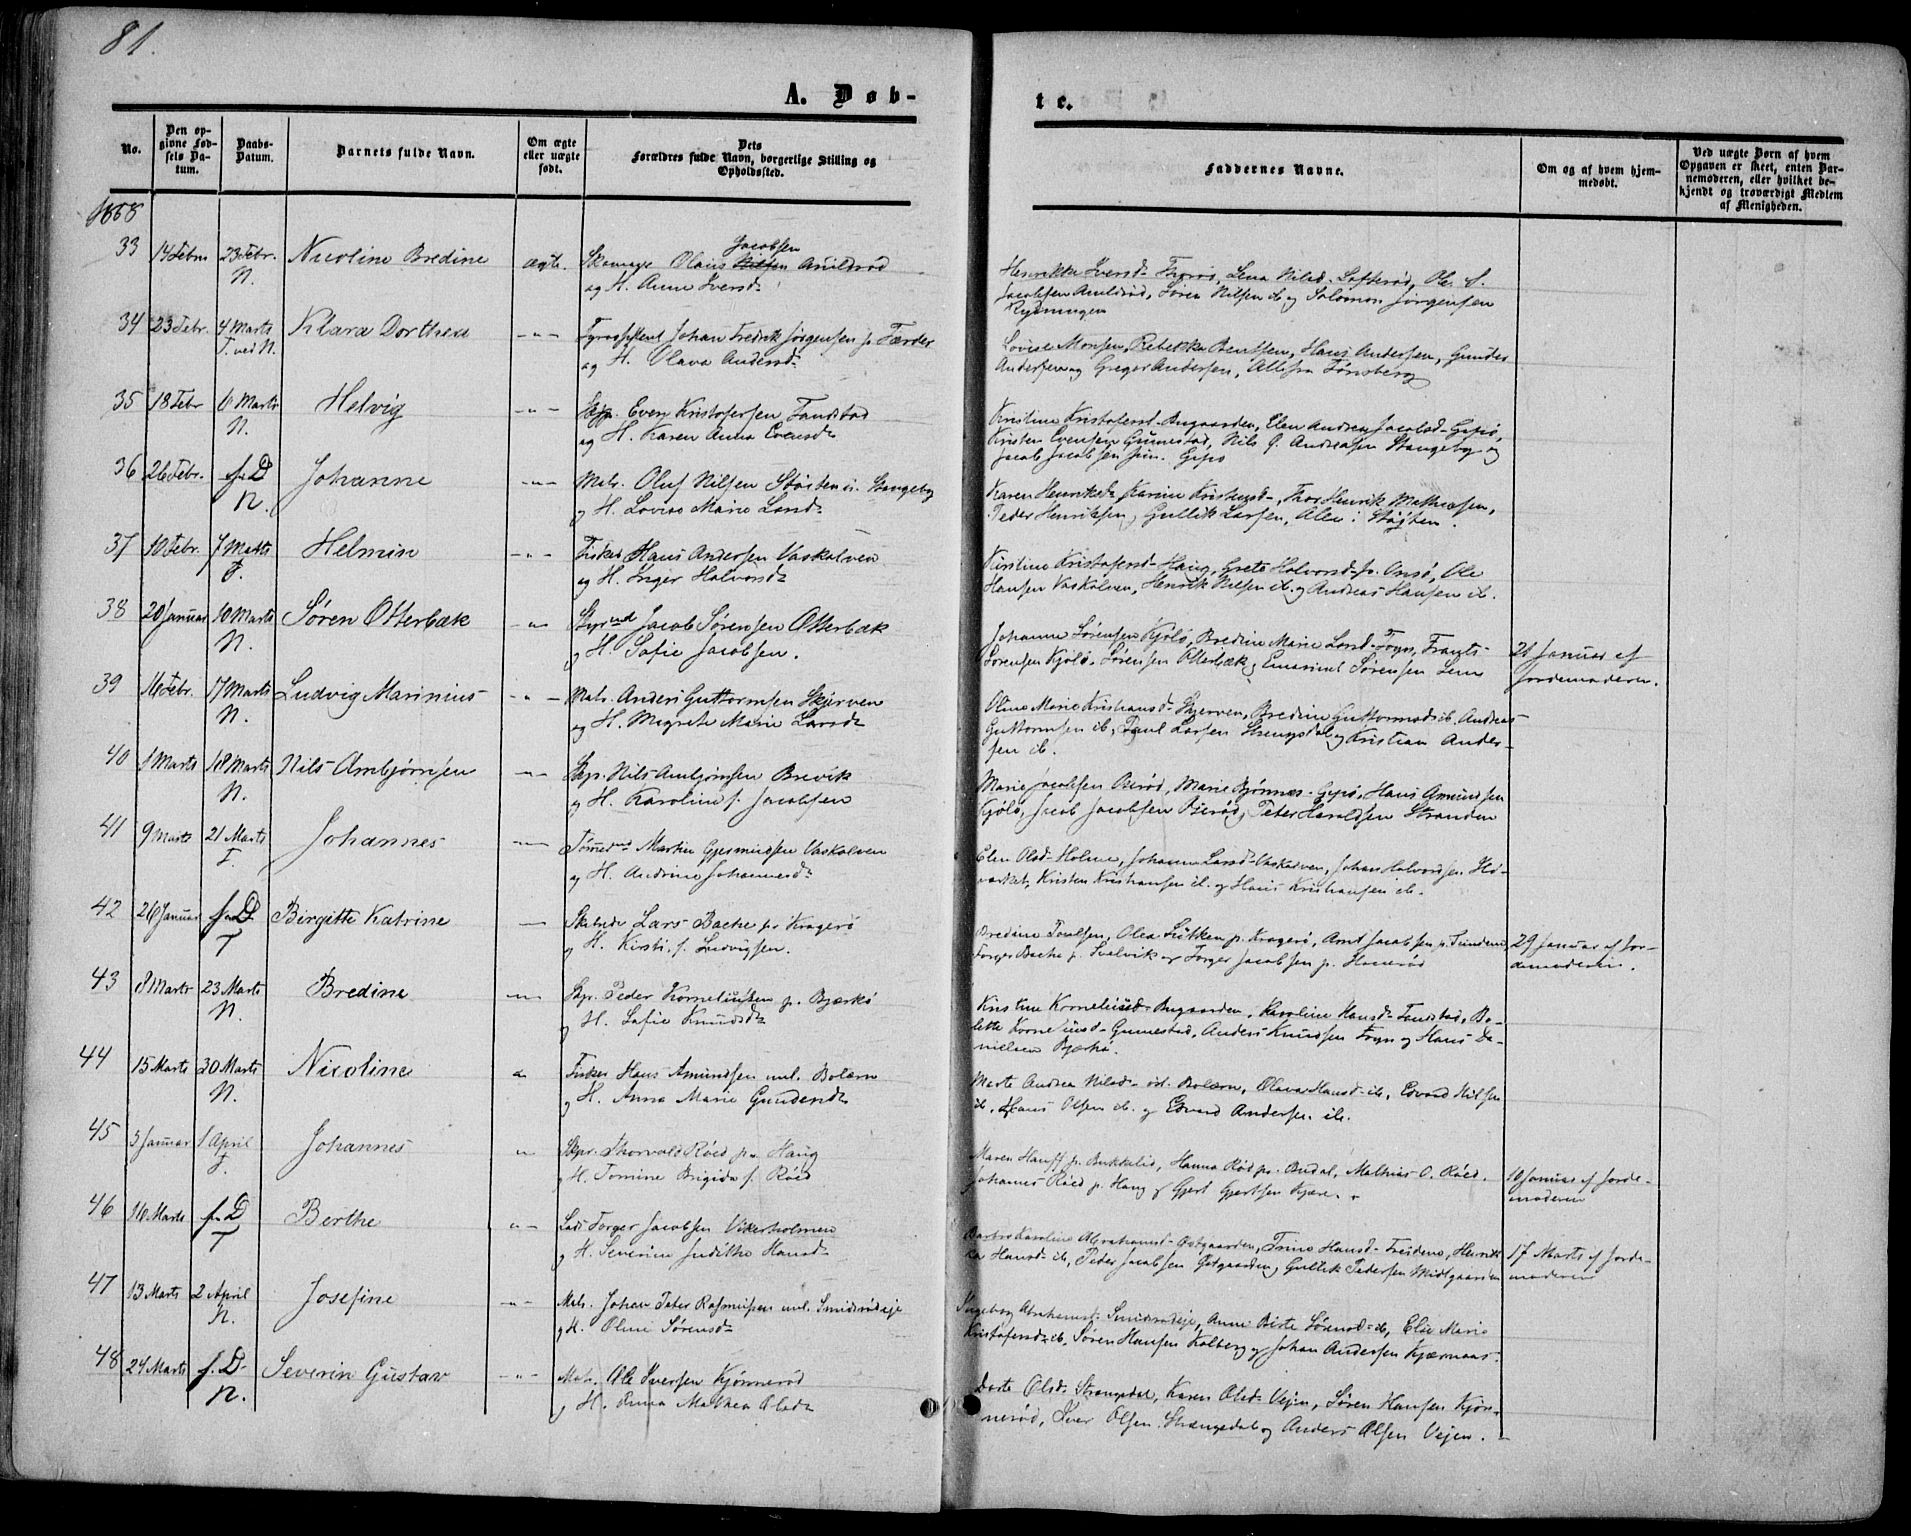 81.
A. Døb-
te.
No.
Den op-
givne Fød-
sels Da-
tum.
Daabs-
Datum.
Barnets fulde Navn.
Om ægte
eller uægte
født.
Dets
Forældres fulde Navn, borgerlige Stilling og
Opholdssted.
Faddernes Navne.
Om og af hvem hjem-
medøbt.
Ved uægte Born af hvem
Opgaven er skeet, enten Bar-
nemoderen, eller hvilket be-
kjendt og troværdigt Medlem
af Menigheden.
1868
33 14 Febr 23 Febr. N. Nicoline Bredine ægte. Olaus Nilsen Jacobsen Amildrød
og H. Anne Iversd
Jacobsen Amildrød, Søren Nilsen ib og Salomon Jørgensen
Rydningen
34 23 Febr. 4 Marts T. ved N. Klara Dorthea - " - Johan Fredrik Jørgensen p. Færder
og H. Olava Andersd
Lovise Monsen, Rebekka Berntsen, Hans Andersen, Gunder
Andersen og Greger Andersen, Alle fra Tønsberg
35 18 Febr 6 Marts N. Helvig - " - Skpr. Even Kristofersen Tandstad
og H. Karen Anna Evensd
Kristine Kristofersd Bugaarden, Elen Andrea Jacobsd Gipø,
Kristen Evensen Gunnestad, Nils G. Andreasen Stangeby og
Jacob Jacobsen jun. Gipø
36 26 Febr. s. D. N. Johanne - " - Matr. Oluf Nilsen Støiten v. Stangeby
og H. Lovise Marie Larsd
Karen Henriksd, Karine Kristensd, Thor Henrik Mathiesen,
Peder Henriksen, Gullik Larsen, Alle i Støjten.
37 10 Febr. 7 Marts T. Helmin - " - Fisker Hans Andersen Vaskalven
og H. Inger Halvorsd
Kirstine Kristofersd Haug, Grete Halvorsd p. Onsø, Ole
Hansen Vaskalven, Henrik Nilsen ib. og Andreas Hansen ib.
38 20 Januar 10 Marts N. Søren Otterbæk - " - Jacob Sørensen Otterbæk
og H. Sofie Jacobsen.
Johanne Sørensen Kjølø, Bredine Marie Larsd Fogn, Frants
Sørensen Kjølø, Sørensen Otterbæk, Emanuel Sørensen Lem
21 Januar af
Jordemoderen.
39 16 Febr. 17 Marts N. Ludvig Marinius - " - Matr. Anders Guttormsen Skjerven
og H. Megrete Marie Larsd
Oline Marie Kristiansd Skjerven, Bredine Guttormsd ib, Andreas
Guttormsen ib, Paul Larsen Strengsdal og Kristian Ander-
sen ib.
40 1 Marts 18 Marts N. Nils Ambjørnsen - " - Skpr. Nils Ambjørnsen Brevik
og H. Karoline f. Jacobsen
Marie Jacobsen Bjerød, Marie Bjønnes Gipø, Hans Amundsen
Kjølø, Jacob Jacobsen Bjerød, Peter Haraldsen Stranden
41 9 Marts 21 Marts T. Johannes - " - Martin Gjermundsen Vaskalven
og H. Andrine Johannesd
Elen Olsd Holme, Johanne Larsd Vaskalven, Johan Halvorsen Hø-
værket, Kristen Kristiansen ib. og Hans Kristiansen ib.
42 26 Januar s. D. T Birgitte Katrine — Lars Bache p. Kragerø
og H. Kirsti f. Ludvigsen.
Bredine Paulsen, Olea Lütken p. Kragerø, Arnt Jacobsen p.
Torger Bache p. Svelvik og Torger Jacobsen p.
29 Januar af Jor-
demoderen.
43 8 Marts 23 Marts N. Bredine - " - Skpr. Peder Korneliussen p. Bjærkø
og H. Sofie Knudsd
Kristine Korneliusd Bugaarden, Karoline Hansd Tandstad, Bo-
lette Korneliusd Gunnestad, Anders Knudsen Fogn og Hans Da-
nielsen Bjerkø.
44 15 Marts 30 Marts N. Nicoline " Fisker Hans Amundsen ml. Bolærn
og H. Anna Marie Gundersd
Marte Andrea Nilsd øst. Bolærn, Olava Hansd ib, Edvard Nilsen
ib, Hans Olsen ib. og Edvard Andersen ib.
45 5 Januar 1 April T. Johannes " Skpr. Thorvald Røed p. Haug
og H. Tomine Brigida f. Røed
Maren Hauff p. Bukkelid, Hanna Rød p. Budal, Mathias O. Røed,
Johannes Røed p. Haug og Gjert Gjertsen Kjære.
10 Januar af Jorde-
moderen
46 16 Marts s. D T Berthe " - Lods Torger Jacobsen Vikerholmen
og H. Severine Judithe Hansd
Barbro Karoline Abrahamsd Østgaarden, Trine Hansd, Henrik-
ka Hansd ib, Peder Jacobsen Østgaarden, Gullik Pedersen Midtgaarden
17 Marts af Jorde-
moderen
47 13 Marts 2 April N. Josefine - " - Matr. Johan Peter Rasmussen ml. Smidsrødeje
og H. Oline Sørensd
Ingeborg Abrahamsd Smidsrødeje, Anne Birte Sørensd ib, Elie Marie
Kristofersd ib, Søren Hansen Kolberg og Johan Andersen Kjærnaas.
48 24 Marts s. D N. Severin Gustav - " - Matr. Ole Iversen Kjønnerød
og H. Anna Mathea Olsd
Dorte Olsd Strengsdal, Karen Olsd Vejen, Søren Hansen Kjøn-
nerød, Iver Olsen Strængsdal og Anders Olsen Vejen.